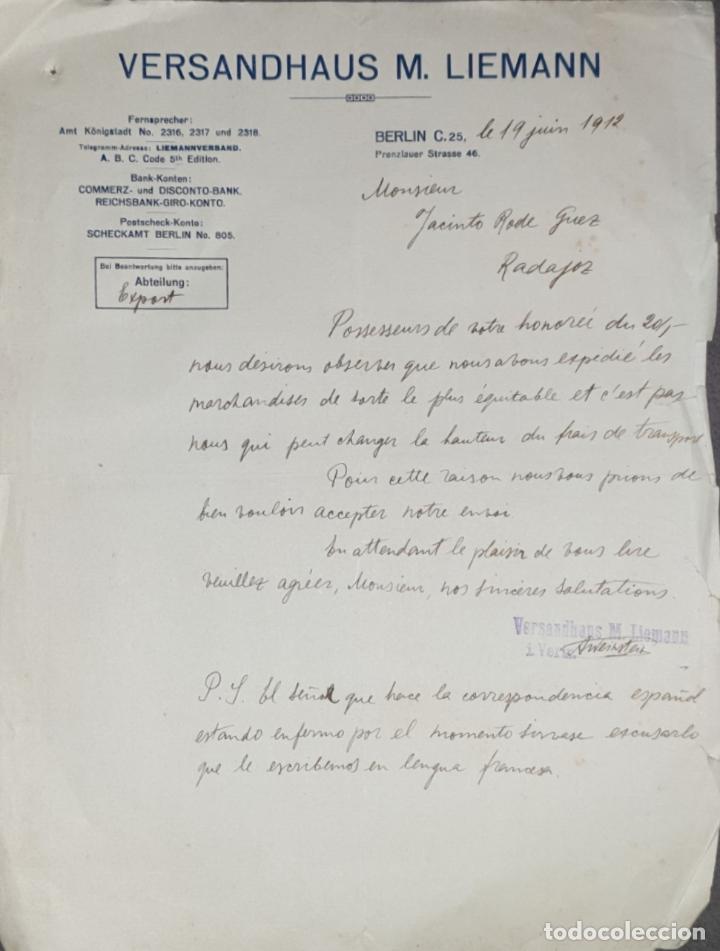 VERSANDHAUS M. LIEMANN
Fernsprecher:
Amt Königstadt No. 2316, 2317 und 2318.
Telegramm-Adresse: LIEMANNVERBAND.
A. B. C. Code 5th Edition.
Bank-Konten:
COMMERZ- und DISCONTO-BANK.
REICHSBANK-GIRO-KONTO.
Postscheck-Konto:
SCHECKAMT BERLIN No. 805.
Bei Beantwortung bitte anzugeben:
Abteilung:
Export
BERLIN C. 25, le 19 juin 1912
Prenzlauer Strasse 46.
Monsieur
Jacinto Rode Guez
Radajoz
Possesseurs de votre honoreé du 20,-
nous désirons observer que nous avons expédié les
marchandises de sorte le plus équitable et c'est pas
nous qui peut changer la hauteur du frais de transport
Pour cette raison nous vous prions de
bien vouloir accepter notre envoi
En attendant le plaisir de vous lire
veuillez agréer, Monsieur, nos sincères salutations.
Versandhaus M. Liemann
P. S. El señor que hace la correspondencia español
estando enfermo por el momento sirvase escusarlo
que le escribemos en lengua francesa.
todocoleccion